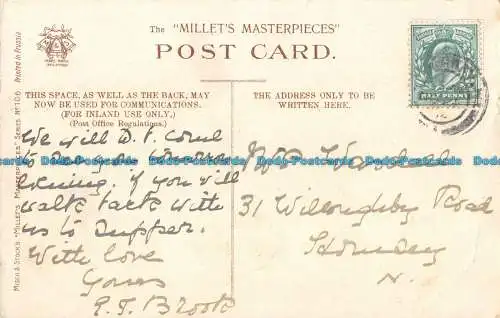 The "MILLET'S MASTERPIECES"
POST CARD.
Printed in Prussia
MISCH & STOCK'S "MILLET'S MASTERPIECES" SERIES No 106
THIS SPACE, AS WELL AS THE BACK, MAY
NOW BE USED FOR COMMUNICATIONS.
(FOR INLAND USE ONLY.)
(Post Office Regulations.)
THE ADDRESS ONLY TO BE
WRITTEN HERE.
HALF PENNY
We will D.V. come
to see you
evening. if you will
walk back with
us to supper.
With love
Yours
Brook
31 Willoughby Road
Hornsey
N.
Bobbooks Postcards Bobbooks Postcards Bobbooks Postcards
Bobbooks Postcards Bobbooks Postcards Bobbooks Postcards